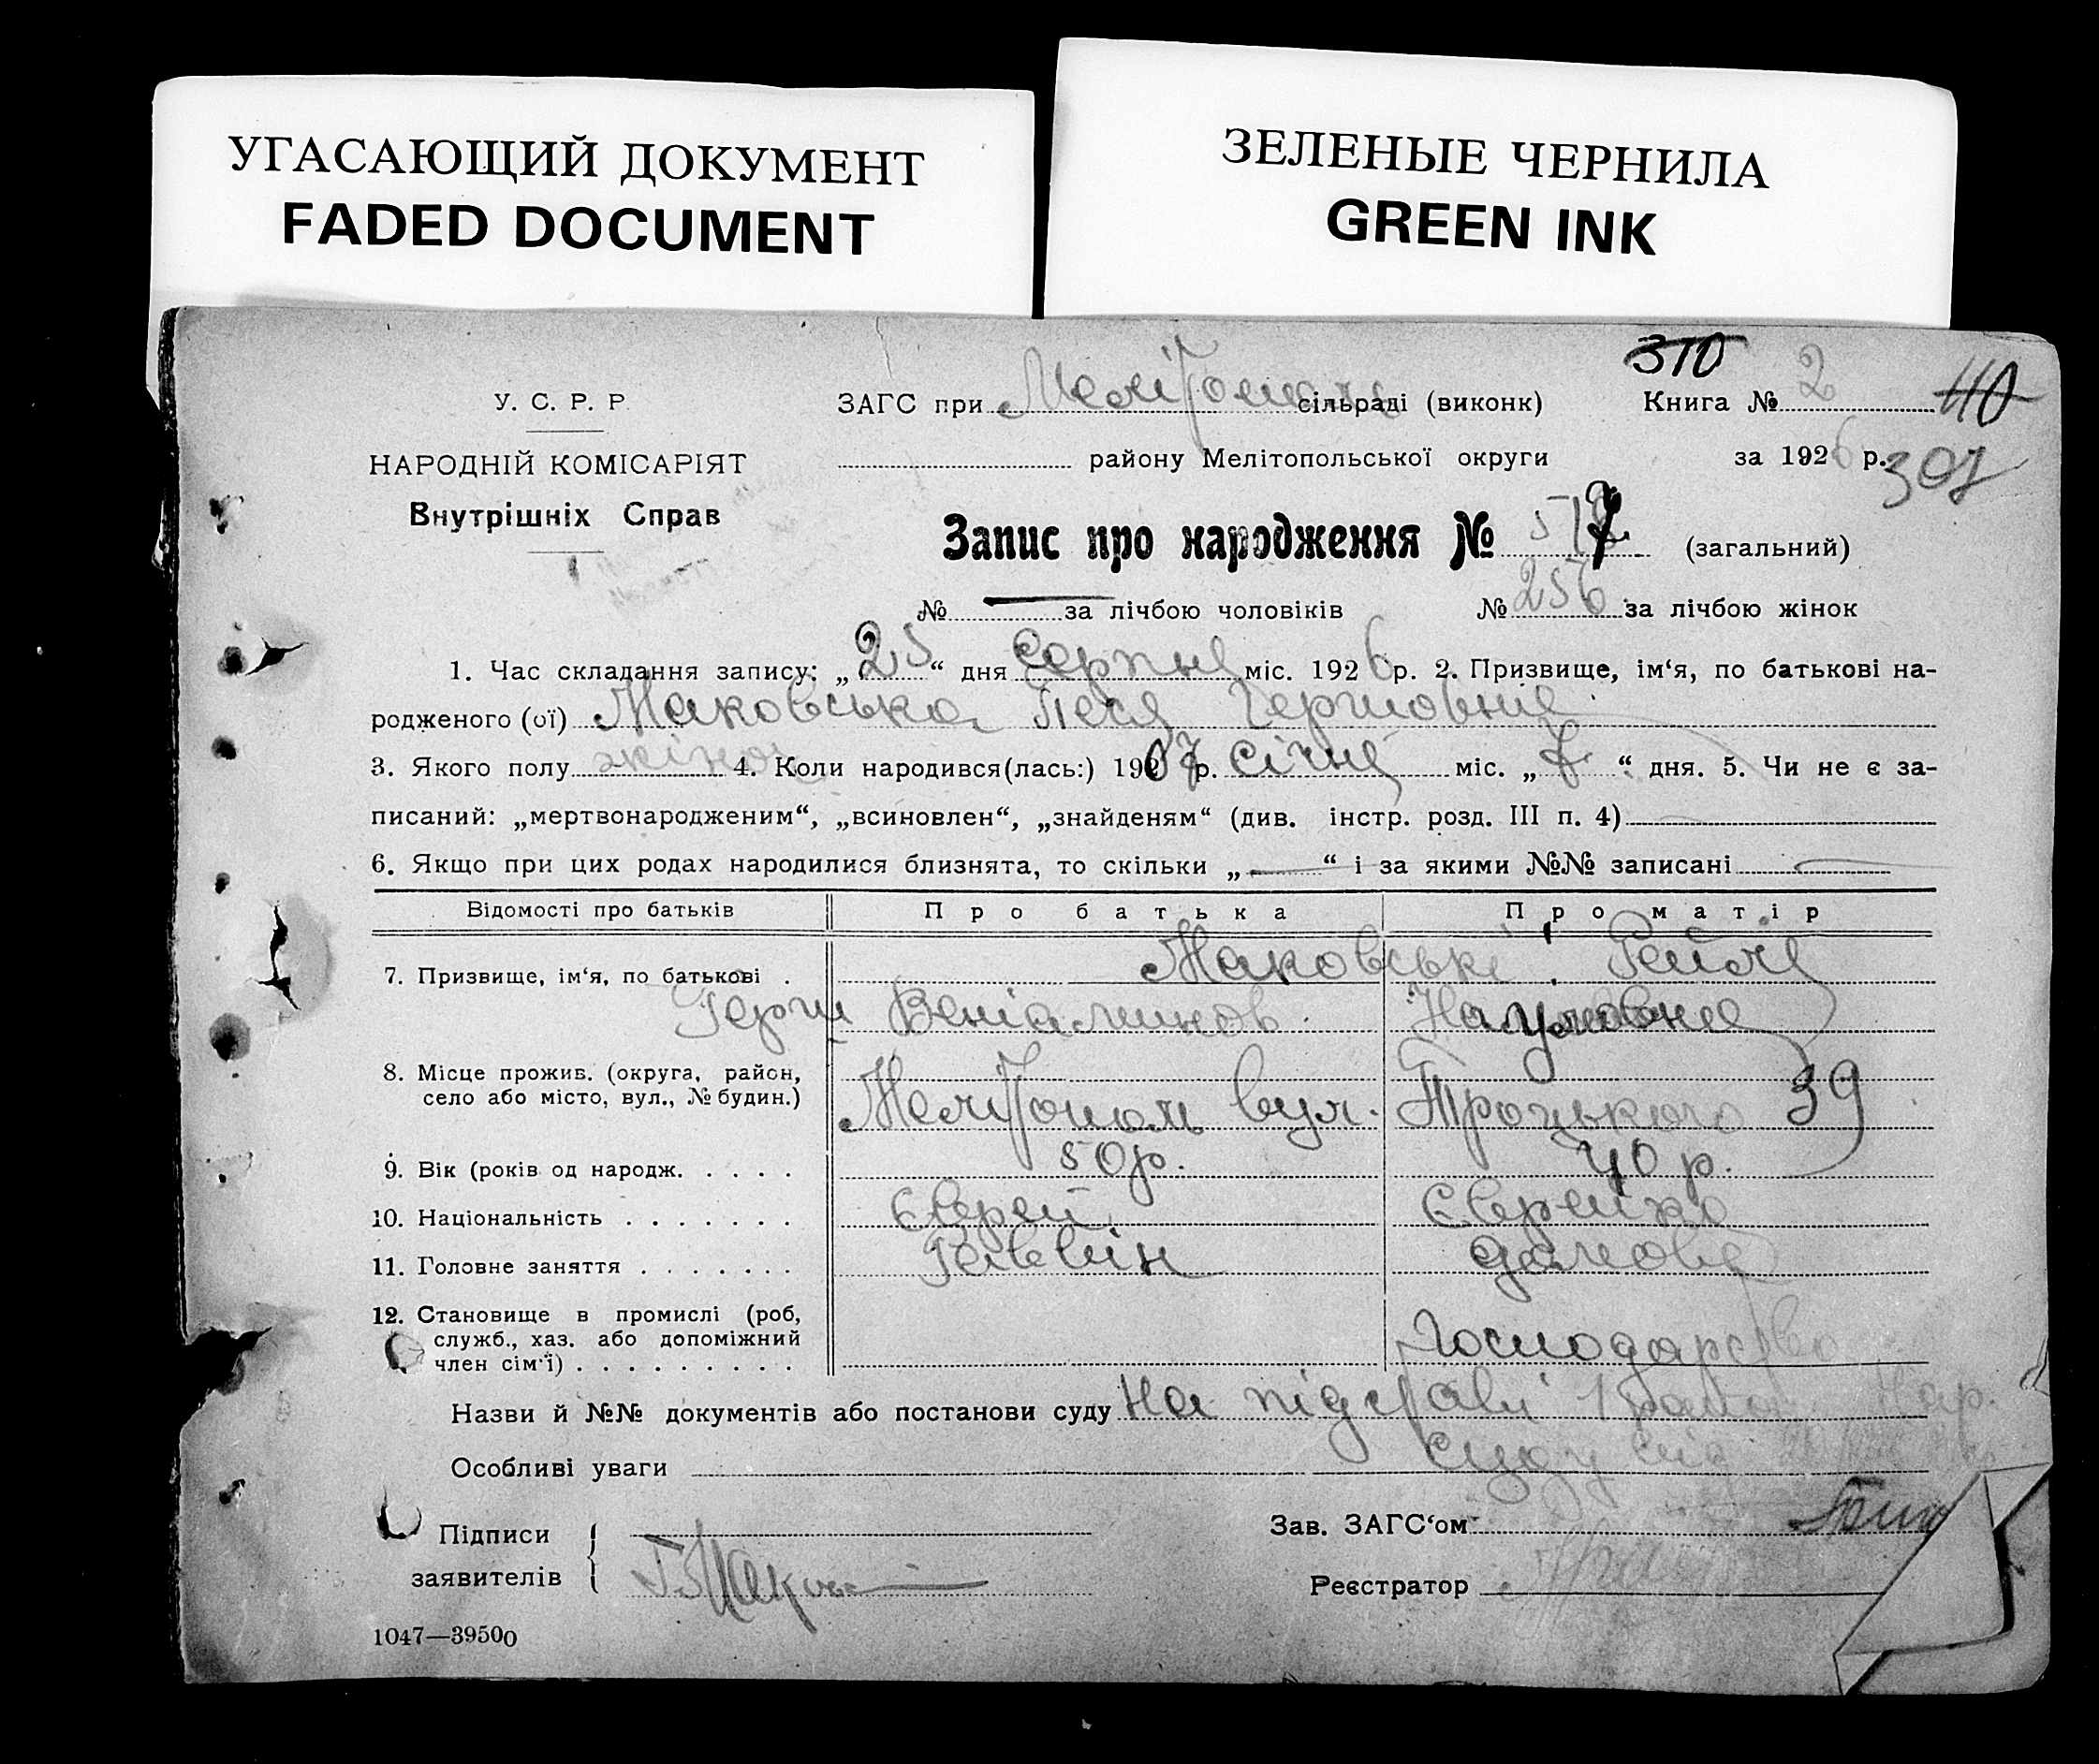 УГАСАЮЩИЙ ДОКУМЕНТ
FADED DOCUMENT
ЗЕЛЕНЫЕ ЧЕРНИЛА
GREEN INK
310
У. С. Р. Р.
ЗАГС при сільраді (виконк) Книга № 2 110
НАРОДНІЙ КОМІСАРІЯТ
району Мелітопольської округи за 1926 р. 307
Внутрішніх Справ
Запис про народження № (загальний)
№ за лічбою чоловіків № 256 за лічбою жінок
1. Час складання запису: „25“ дня Серпня міс. 1926 р. 2. Призвище, ім‘я, по батькові на-
родженого (ої) Маковська Песя Гершовна
3. Якого полу жіноч 4. Коли народився(лась:) 1907 р. Січня міс. „7“ дня. 5. Чи не є за-
писаний: „мертвонародженим“, „всиновлен“, „знайденям“ (див. інстр. розд. III п. 4)
6. Якщо при цих родах народилися близнята, то скільки „—“ і за якими №№ записані
Відомості про батьків Про батька Про матір
7. Призвище, ім‘я, по батькові . Маковські
Герш Веніаминов. Наумовна
8. Місце прожив. (округа, район,
село або місто, вул., № будин.) Мелітополь вул. Троцького 39
9. Вік (років од народж. . . . . 50р. 40 р.
10. Національність . . . . . . . Єврей Єврейка
11. Головне заняття . . . . . . . Раввін домове
12. Становище в промислі (роб,
служб., хаз. або допоміжний
член сім‘ї) . . . . . . . . . Господарство
Назви й №№ документів або постанови суду На підставі Нар.
Особливі уваги Суду від
Підписи
заявителів
Зав. ЗАГС‘ом
Реєстратор
1047—39500